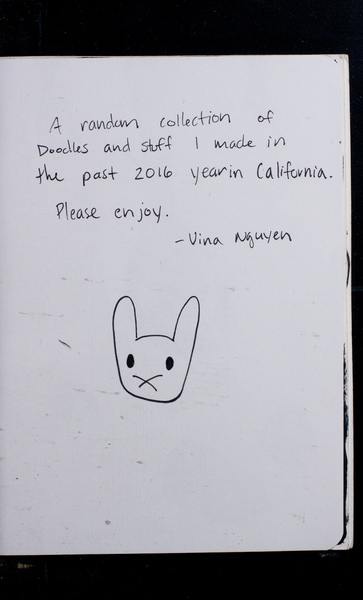 A random collection of
Doodles and stuff I made in
the past 2016 year in California.
Please enjoy.
- Vina Nguyen